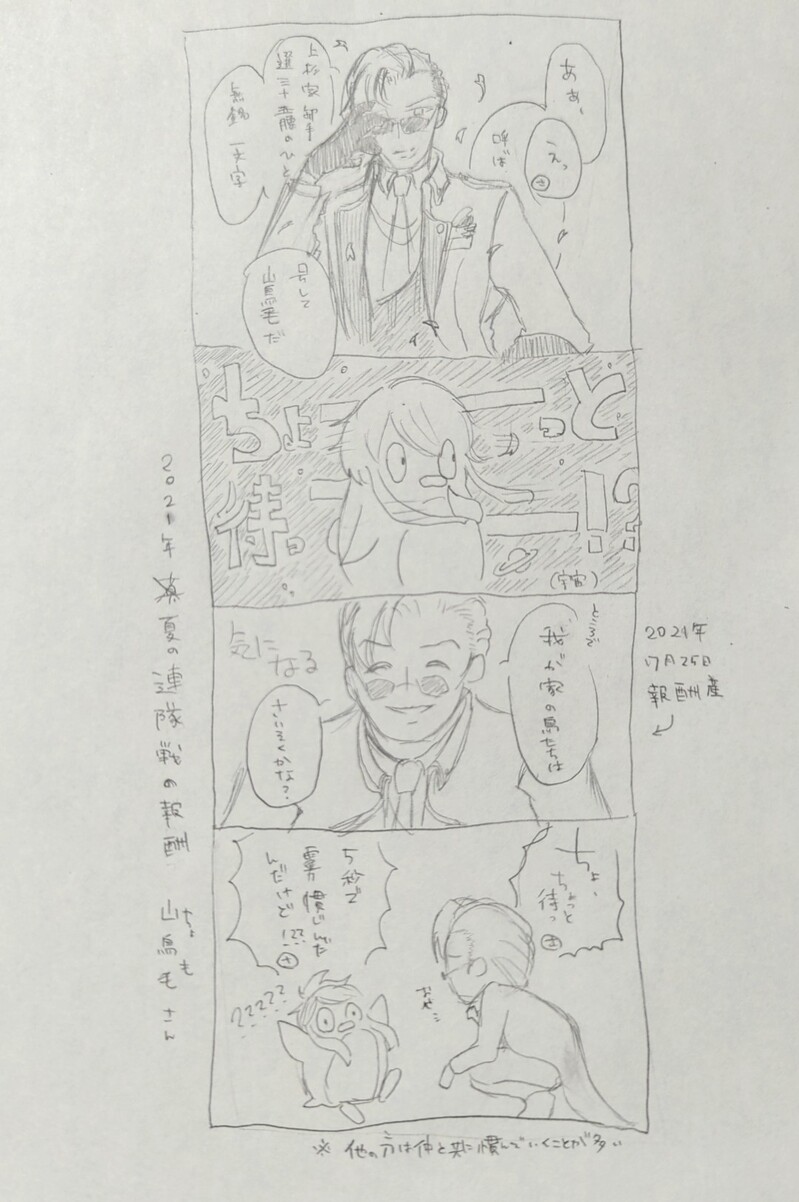 ああ、
えっ
さ
呼ば
上杉家御手
選三十五腰のひと
無銘 一文字
号して
山鳥毛だ
ちょーーっと
待ーーー!!?
(宇宙)
ところで
我が家の鳥たちは
気になる
さいそくかな?
ちょ、
ちょっと
待っ
5秒で
んだけど!??
さ
?????
おや…
2021年 夏の連隊戦の報酬 山鳥毛さん
ちょも
2021年
7月25日
報酬産
※ 他の方は仲と共に慎んでいくことが多い